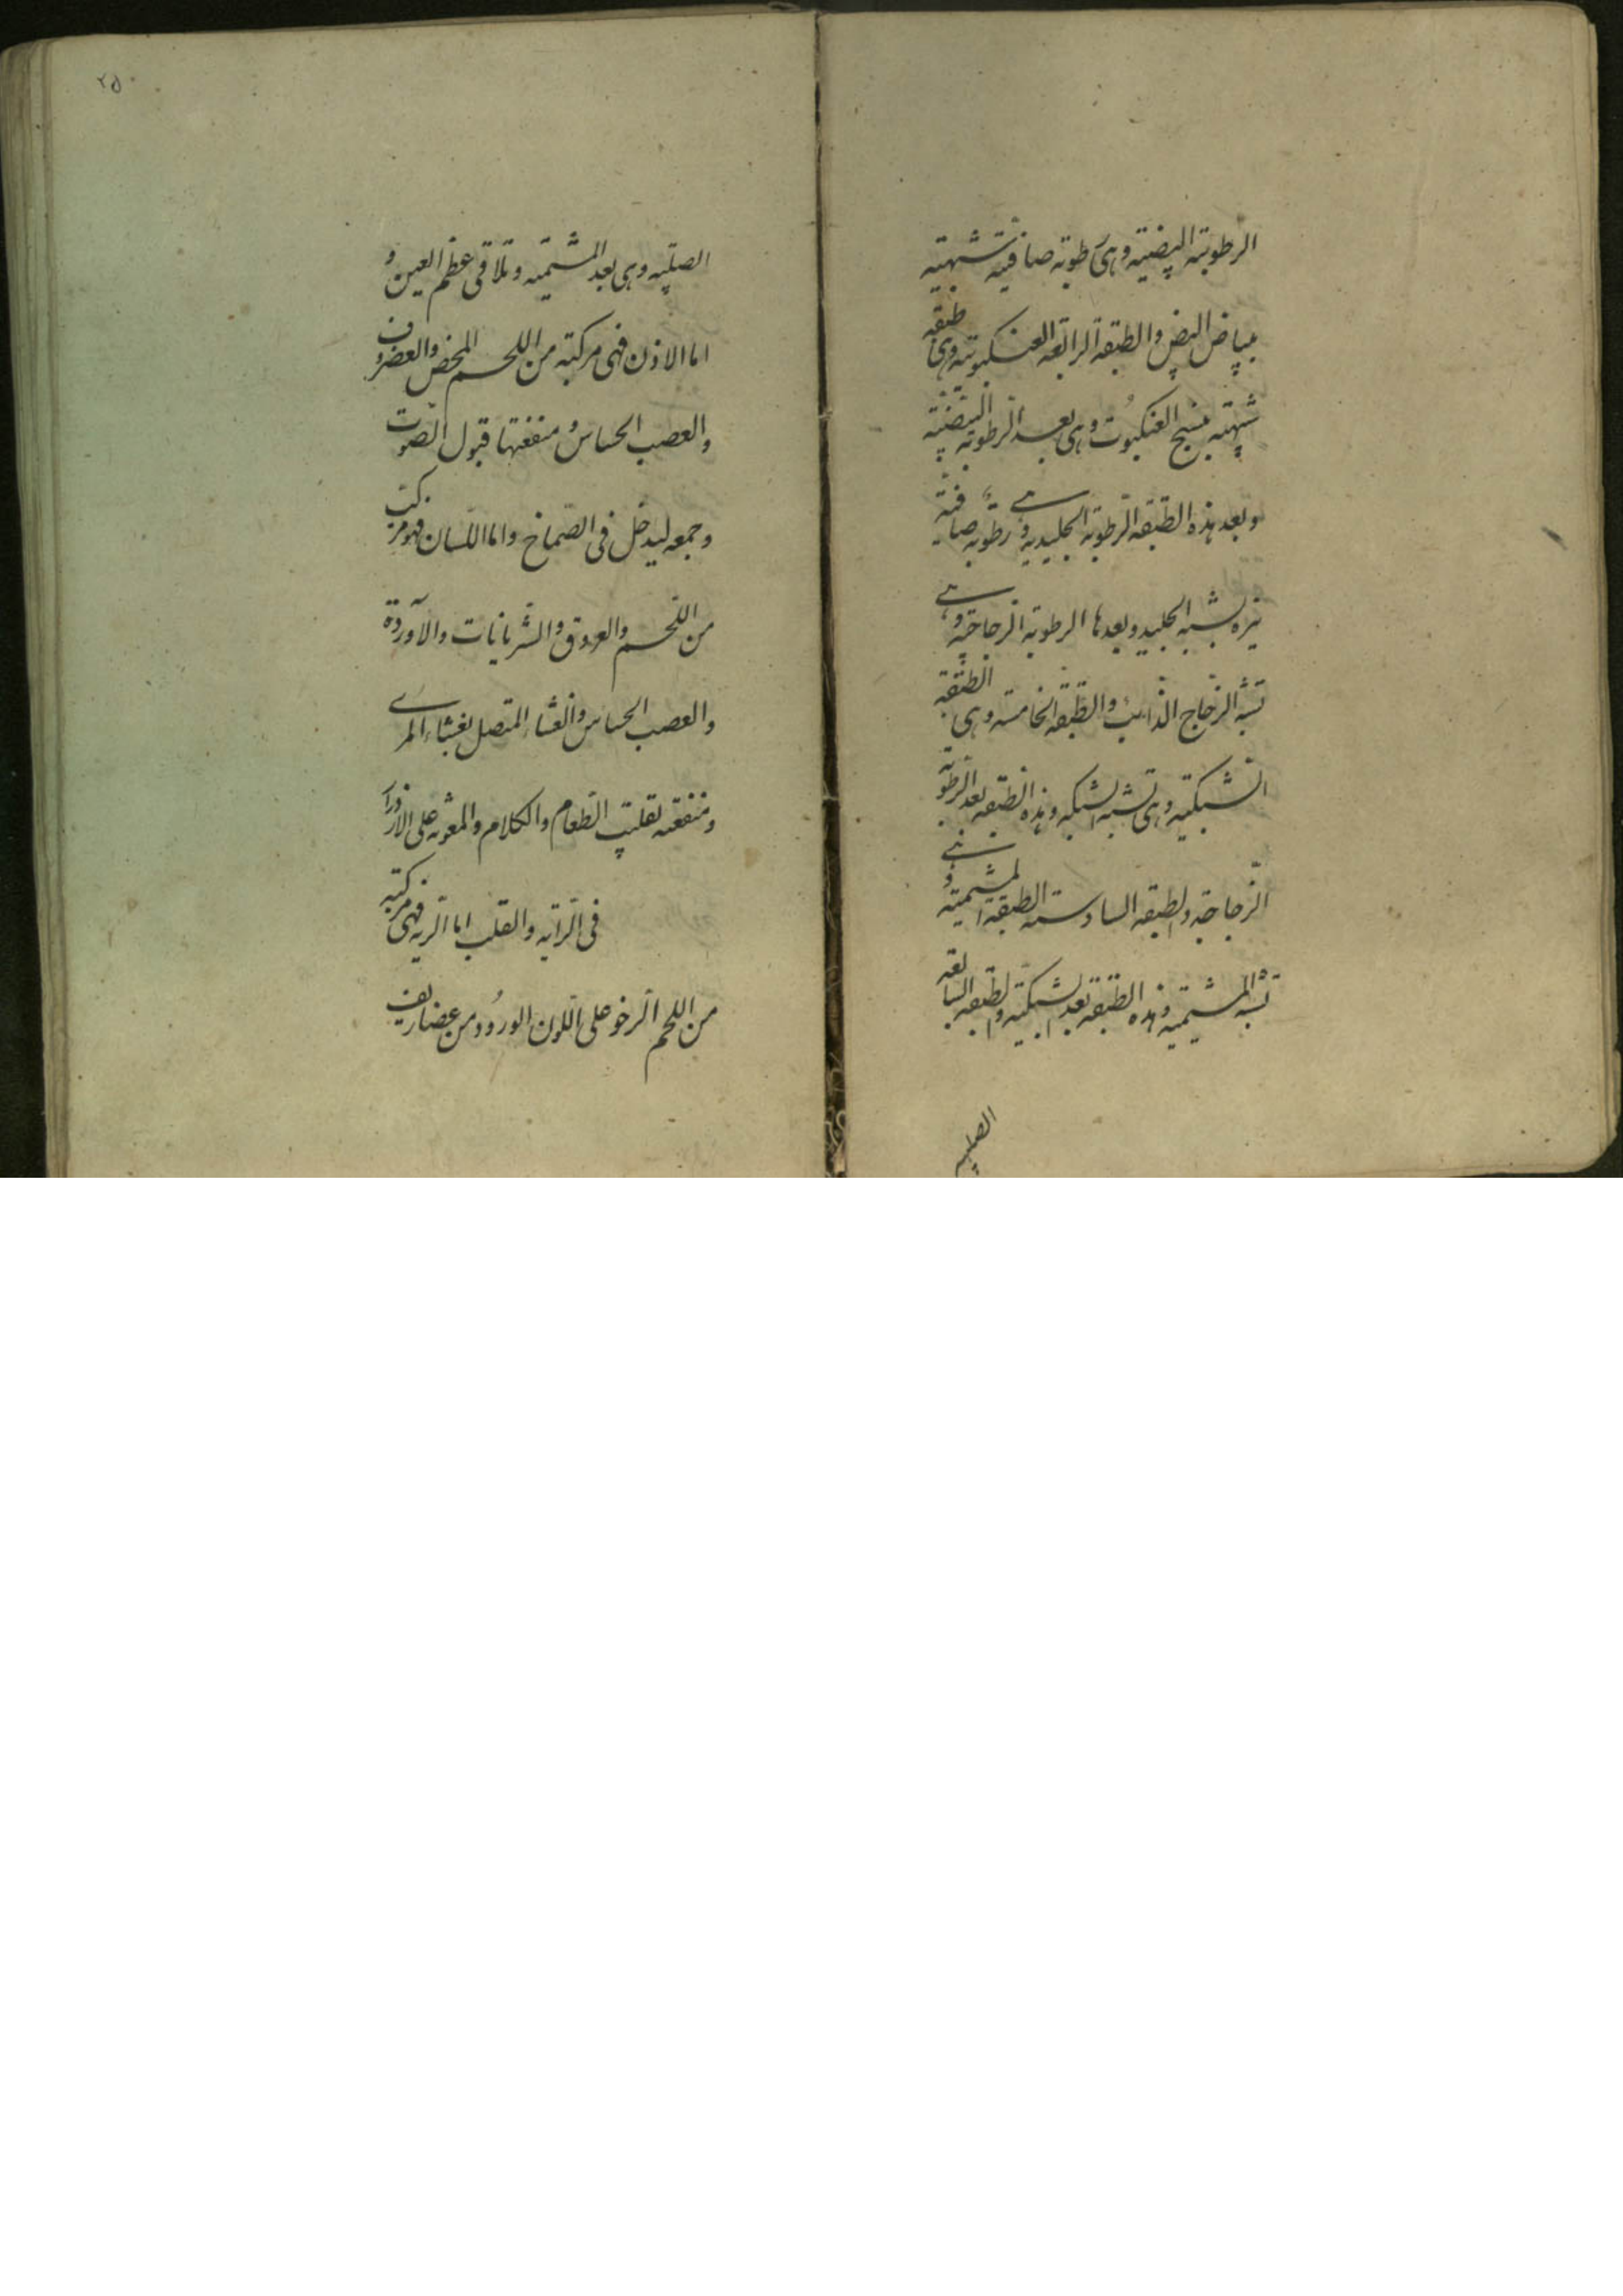 الرطوبة البيضية وهى رطوبة صافية شبيهة
ببياض البيض والطبقة الرابعة العنكبوتية وهى طبقة
شبيهة بنسج العنكبوت وهى بعد الرطوبة البيضية
وبعد هذه الطبقة الرطوبة الجليدية وهي رطوبة صافية
نيره تشبه الجليد وبعدها الرطوبة الزجاجية وهي
تشبه الزجاج الذائب والطبقة الخامسة وهى الطبقة
الشبكية وهى تشبه الشبكه وهذه الطبقه بعد الرطوبة
الزجاجية والطبقه السادسة الطبقة المشيمية وهي
تشبه المشيمية وهذه الطبقة بعد الشبكية والطبقه السابعة
الصلبيه
٢٥٠
الصلبية وهى بعد المشيمية وتلاقى عظم العين و
اما الاذن فهى مركبة من اللحم المحض والغضروف
والعصب الحساس ومنفعتها قبول الصوت
وجمعه ليدخل فى الصماخ واما اللسان فهو مركب
من اللحم والعروق والشريانات والآوردة
والعصب الحساس والغشاء المتصل بغشاء المرے
ومنفعته تقليب الطعام والكلام والمعونة على الازدراد
فى الرية والقلب اما الرية فهى مركبة
من اللحم الرخو على اللون الورود ومن غضاريف